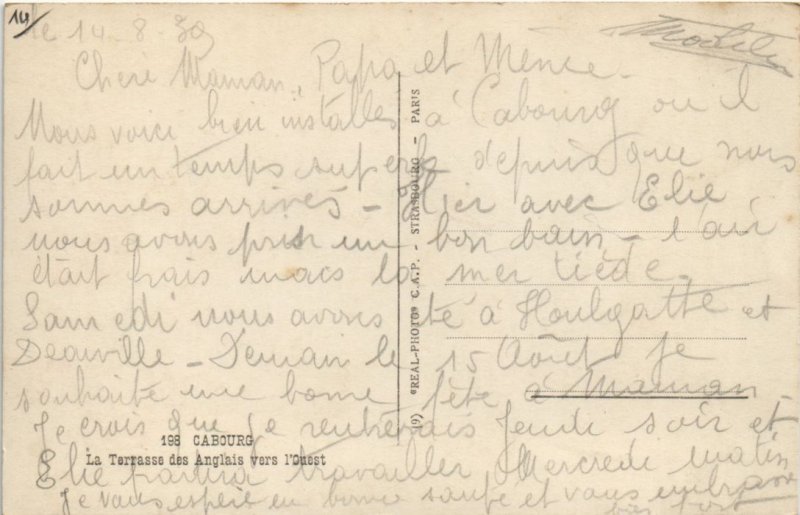 14
le 14-8-39
Chère Maman, Papa et Mémée.
Nous voici bien installés à Cabourg où il
fait un temps superbe depuis que nous
sommes arrivés - Hier avec Elie
nous avons pris un bon bain - l'air
était frais mais la mer tiède -
Samedi nous avons été à Houlgatte et
Deauville - Demain le 15 Août je
souhaite une bonne fête à Maman
Je crois que je rentrerais Jeudi soir et
Elie partira travailler Mercredi matin
Je vous espère en bonne santé et vous embrasse
bien fort
198 CABOURG
La Terrasse des Anglais vers l'Ouest
(9) "REAL-PHOTO" C.A.P. - STRASBOURG - PARIS